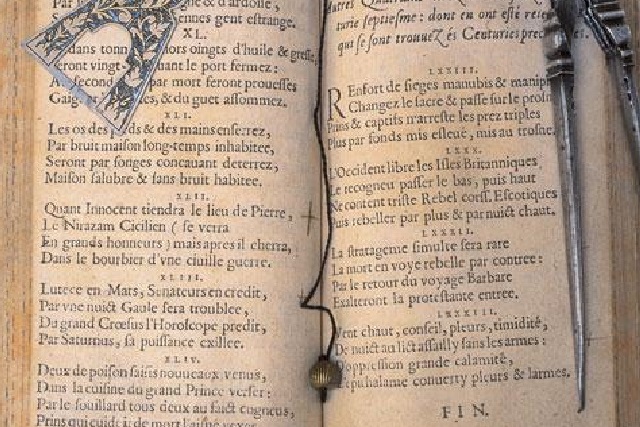 gent estrange.
XL.
dans tonn iors oingts d'huile & gresse,
Seront vingt au port fermez:
second par mort feront prouesses
Gaig es, & du guet assommez.
XLI.
Les os des pieds & des mains enserrez,
Par bruit maison long-temps inhabitee,
Seront par songes concauant deterrez,
Maison salubre & sans bruit habitee.
XLII.
Quant Innocent tiendra le lieu de Pierre,
Le Nizaram Cicilien (se verra
En grands honneurs) mais apres il cherra,
Dans le bourbier d'vne ciuille guerre.
XLIII.
Lutece en Mars, Senateurs en credit,
Par vne nuict Gaule sera troublee,
Du grand Crœsus l'Horoscope predit,
Par Saturnus, sa puissance exillee.
XLIV.
Deux de poison saisis nouueaux venus,
Dans la cuisine du grand Prince verser:
Par le souillard tous deux au faict cogneus,
turie septiesme: dont en ont esté
qui se sont trouuez és Centuries prec
LXXIII.
REnfort de sieges manubis & manip
Changez le sacre & passe sur le prosn
Prins & captifs n'arreste les prez triples
Plus par fonds mis esleué, mis au trosne.
LXXX.
L'Occident libre les Isles Britanniques
Le recogneu passer le bas, puis haut
Ne content triste Rebel corss. Escotiques
Puis rebeller par plus & par nuict chaut.
LXXXII.
La stratageme simulte sera rare
La mort en voye rebelle par contree:
Par le retour du voyage Barbare
Exalteront la protestante entree.
LXXXIII.
Vent chaut, conseil, pleurs, timidité,
De nuict au lict assailly sans les armes:
D'oppression grande calamité,
L'epithalame conuerty pleurs & larmes.
FIN.